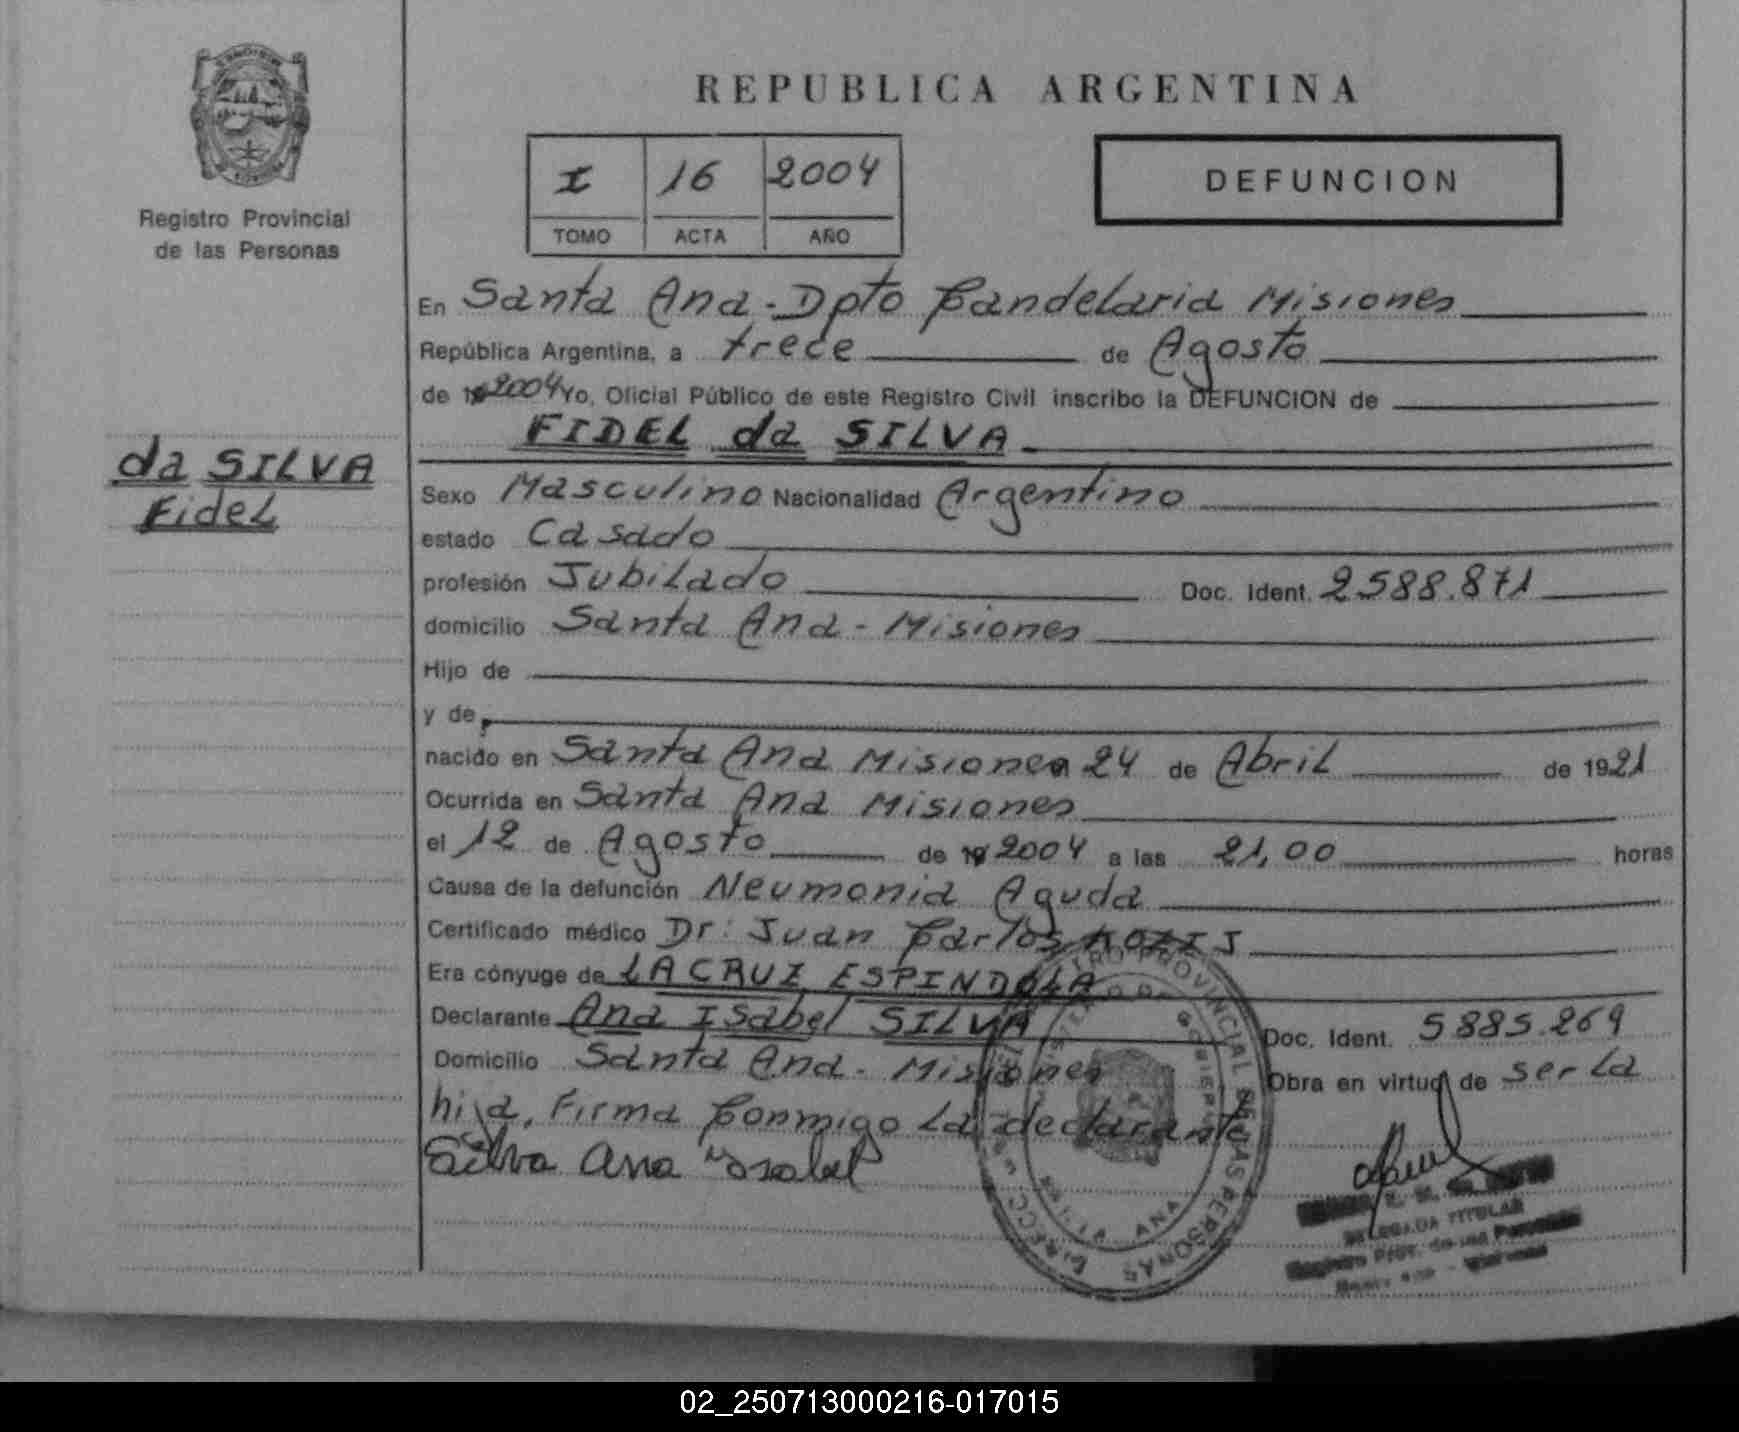 REPUBLICA ARGENTINA
I 16 2004
TOMO ACTA AÑO
DEFUNCION
Registro Provincial
de las Personas
da SILVA
Fidel
En Santa Ana - Dpto Candelaria Misiones
República Argentina, a trece de Agosto
de 2004 Yo, Oficial Público de este Registro Civil inscribo la DEFUNCION de
FIDEL da SILVA
Sexo Masculino Nacionalidad Argentino
estado Casado
profesión Jubilado Doc. Ident. 2588.871
domicilio Santa Ana - Misiones
Hijo de
y de
nacido en Santa Ana Misiones 24 de Abril de 1921
Ocurrida en Santa Ana Misiones
el 12 de Agosto de 2004 a las 21,00 horas
Causa de la defunción Neumonia Aguda
Certificado médico Dr: Juan Carlos
Era cónyuge de LACRUZ ESPINDOLA
Declarante Ana Isabel SILVA Doc. Ident. 5885.269
Domicilio Santa Ana - Misiones Obra en virtud de ser la
hija, Firma Conmigo la declarante
Silva Ana Isabel
PROVINCIAL DE LAS PERSONAS
ANA
DELEGADA TITULAR
Registro Prov. de las Personas
02_250713000216-017015